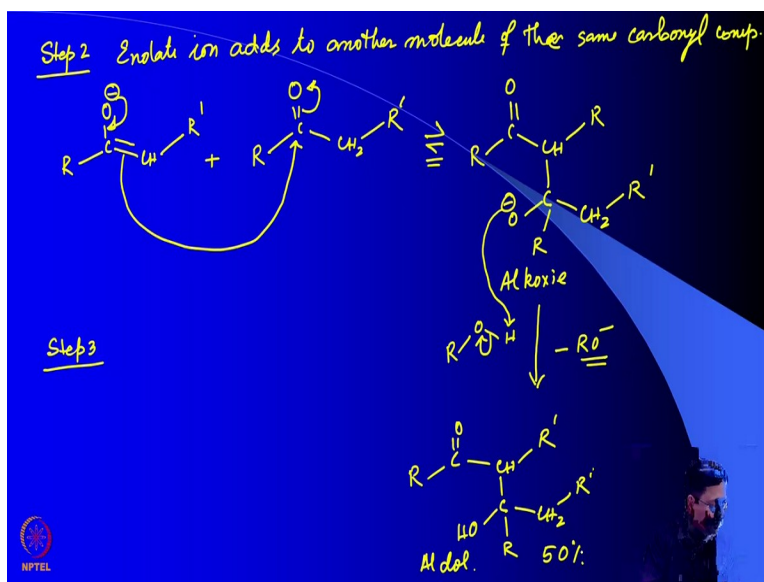 Step 2 Enolate ion adds to another molecule of the same carbonyl comp.
⊖
O O O
R'  R'  R
R C = CH + R C CH2 ⇌ R C CH
⊖ O C CH2 R'
R
Alkoxie
R O H - RO⁻
Step 3
O
R C CH R'
HO C CH2 R'
Aldol. R 50%
NPTEL